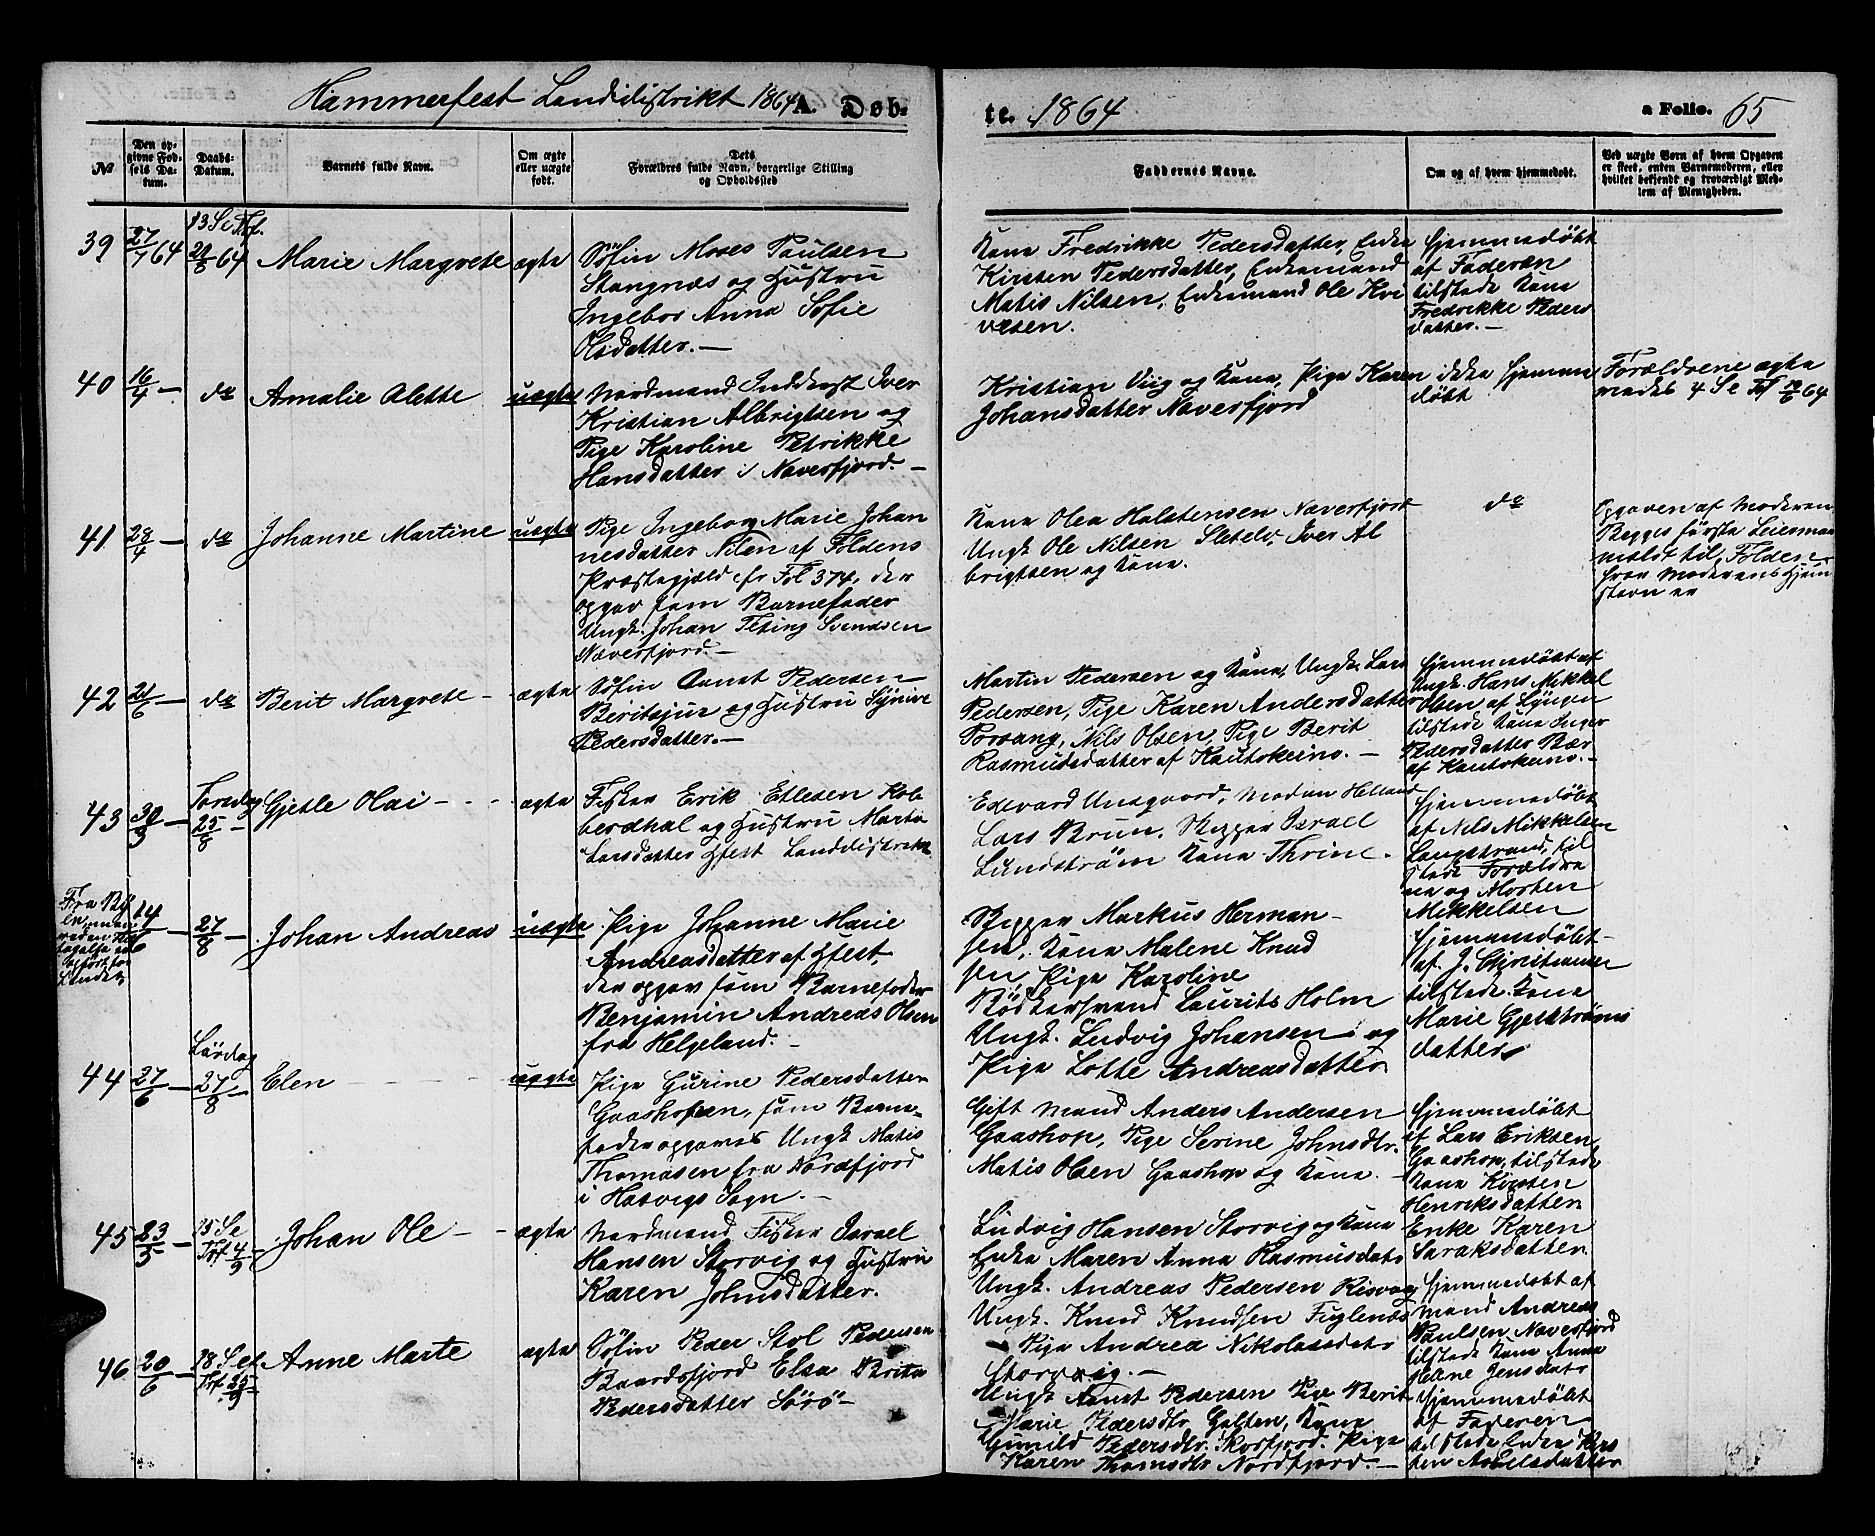 Hammerfest Landdistrikt 1864 A. Døb-
te. 1864
a Folio. 65
№
Den op-
givne Fød-
sels Da-
tum.
Daabs-
Datum.
Barnets fulde Navn.
Om ægte
eller uægte
født.
Dets
Forældres fulde Navn, borgerlige Stilling
og Opholdssted
Faddernes Navne.
Om og af hvem hjemmedøbt.
Ved uægte Børn af hvem Opgaven
er skeet, enten Barnemoderen, eller
hvilket bekjendt og troværdigt Med-
lem af Menigheden.
39 27/7 64
13 S e Trf.
28/8 64
Marie Margrete
ægte
Søfin Moses Paulsen
Stangnæs og Hustru
Ingebor Anna Sofie
Olsdatter. —
Kone Fredrikke Pedersdatter, Enke
Kirsten Pedersdatter, Enkemand
Matis Nilsen, Enkemand Ole
Hjemmedøbt
af Faderen
tilstede Kone
Fredrikke Peders
datter. —
40 16/4 —
do
Amalie Alette
uægte
Nordmand Inderst Iver
Kristian Albrigtsen og
Pige Karoline Petrikke
Hansdatter i Naverfjord. —
Kristian Viig og Kone, Pige Karen
Johansdatter Naverfjord
ikke Hjemme
døbt
Forældrene ægte
viedes 4 S e Trf 19/6 64
41 28/4 —
do
Johanne Martine
uægte
Pige Ingeborg Marie Johan
nesdatter Nilen af Foldens
Præstegjæld cfr Fol 374, der
opgav som Barnefader
Ungk. Johan Svendsen
Naverfjord. —
Kone Olea Halstensen Naverfjord
Ungk Ole Nilsen Sletelv, Iver Al
brigtsen og Kone.
do
Opgaven af Moderen
Begges første Leiermaal
meldt til Folden
hvor Moderens Hjem
stavn er
42 21/6 —
do
Berit Margrete —
ægte
Søfin Aanot Pedersen
Beritsjur og Hustru Synive
Pedersdatter. —
Martin Pedersen og Kone, Ungk. Lars
Pedersen, Pige Karen Andersdatter
Porsang, Nils Olsen, Pige Berit
Rasmusdatter af Kautokeino. —
Hjemmedøbt af
Ungk. Hans Mikkel
Olsen af Lyngen
tilstede Kone Inger
Pedersdatter Bær
af Kautokeino. —
43 30/3 —
Torsdag
25/8 —
Gjetle Olai — - -
ægte
Fisker Erik Etlesen Kob
berdhal og Hustru Marta
Larsdatter Hfest Landdistrikt
Edevard Unsgaard, Madam Helland
Lars Brun, Skipper Israel
Lundstrøm Kone Thrine.
Hjemmedøbt
af Nils Mikkelsen
Langstrand, til
stede Forældre
ne og Morten
Mikkelsen
Fra By
en, men
14/6 —
27/8 —
Johan Andreas
uægte
Pige Johanne Marie
Andreasdatter af Hfest,
der opgav som Barnefader
Benjamin Andreas Olsen
fra Helgeland. —
Skipper Markus Herman-
sen, Kone Malene Knud
sen, Pige Karoline
Bødkersvend Laurits Holm
Ungk. Ludvig Johansen og
Pige Lotte Andreasdatter
Hjemmedøbt
af J. Christiansen
tilstede Kone
Marie
datter
44 27/6 —
Lørdag
27/8 —
Elen - - -
uægte
Pige Gurine Pedersdatter
Gaashopen, som Barne-
fader opgaves Ungk Matis
Thomasen fra Nordfjord
i Hasvigs Sogn. —
Gift Mand Anders Andersen
Gaashop, Pige Serine Johnsdtr.
Matis Olsen Gaashop og Kone. —
Hjemmedøbt
af Lars Eriksen
Gaashop, tilstede
Kone Kirsten
Henriksdatter
Enke Karen
Saraksdatter
45 23/5 —
15 S e
Trf 4/9
Johan Ole —
ægte
Nordmand Fisker Israel
Hansen Storvig og Hustru
Karen Johnsdatter.
Ludvig Hansen Storvig og Kone
Enke Maren Anna Rasmusdatr
Ungk. Andreas Pedersen Risvaag
Ungk. Knud Knudsen Fuglenæs
Pige Andrea Nikolaisdatr
Storvig. —
Hjemmedøbt af
Mand Andreas
Paulsen Naverfjord
tilstede Kone Anna
Helene Jensdatr
46 20/6 —
18 S e
Trf 25/9
Anne Marte
ægte
Søfin Peder Stol Pedersen
Baardsfjord Elsa Brita
Pedersdatter Sørø —
Ungk Aanot Pedersen Pige Berit
Marie Pedersdtr. Galten, Kone
Gunild Pedersdtr. Skarfjord. Pige
Karen Thomsdtr Nordfjord. —
Hjemmedøbt
af Faderen
tilstede Enke Kirs
ten Abelsdatter